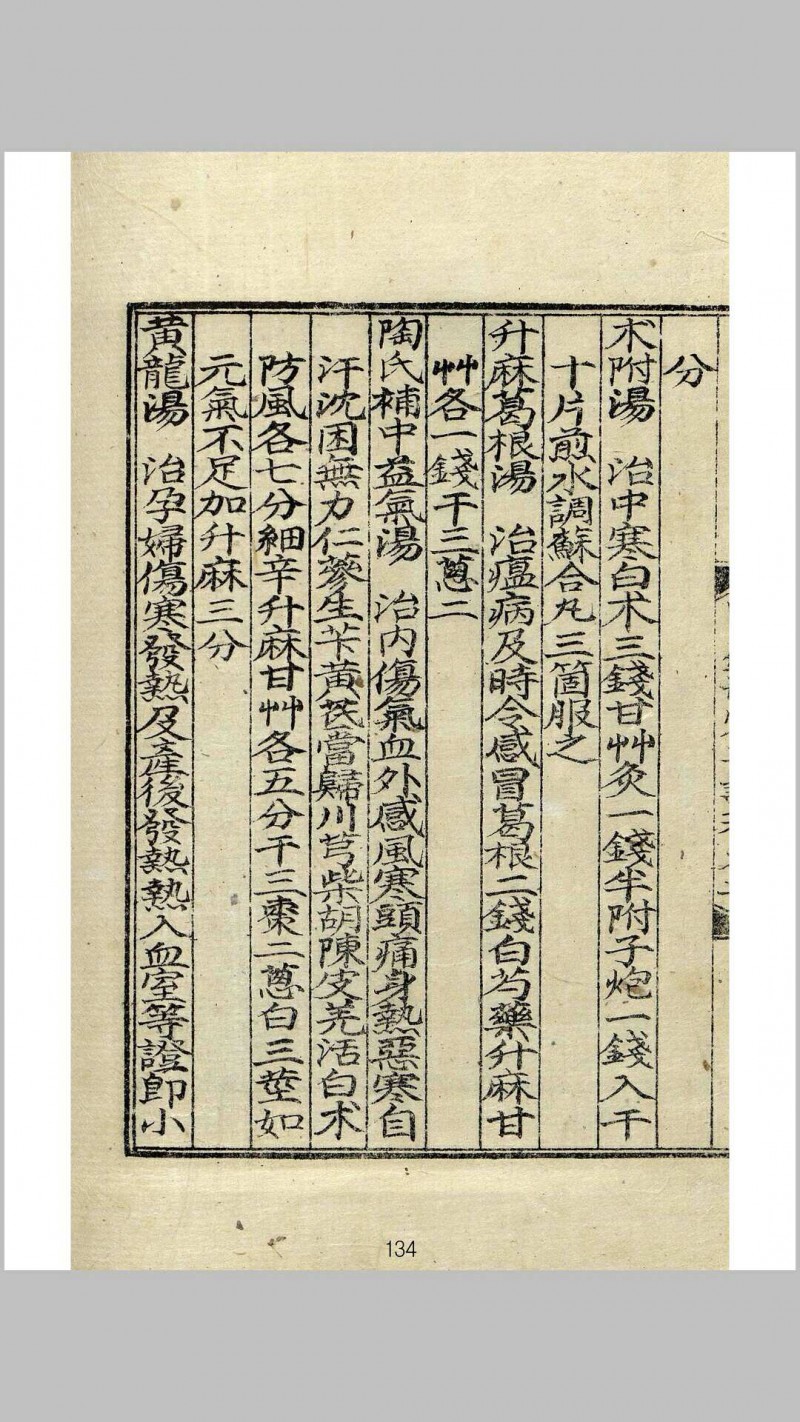 分
朮附湯 治中寒白朮三錢甘艸灸一錢半附子炮一錢入干
十片煎水調蘇合丸三箇服之
升麻葛根湯 治瘟病及時令感冒葛根二錢白芍藥升麻甘
艸各一錢干三蔥二
陶氏補中益氣湯 治内傷氣血外感風寒頭痛身熱惡寒自
汗沈困無力仁蔘生芐黃芪當歸川芎柴胡陳皮羌活白朮
防風各七分細辛升麻甘艸各五分干三棗二蔥白三莖如
元氣不足加升麻三分
黃龍湯 治孕婦傷寒發熱及產後發熱熱入血室等證卽小
134